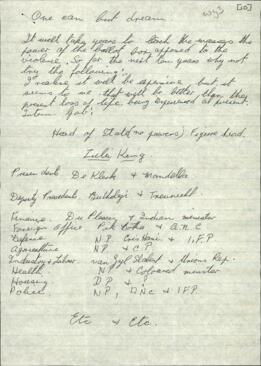 [50]
One can but dream
It will take years to teach the masses the
power of the ballot box, opposed to the
violence. So for the next few years why not
try the following:
I realise it will be expensive, but it
seems to me that will be better than the
present loss of life being experienced at present.
Interim Gov:
Head of State (no powers) Figure head.
Zulu King
Presidents De Klerk & Mandela.
Deputy Presidents Buthelezi & Treurnicht.
Finance. Du Plessis & Indian minister
Foreign Office Pik Botha & A.N.C
Defence N.P. Cris Hani & I.F.P
Agriculture N.P. & C.P.
Industry & Labour. van Zyl Slabbert & Unions Rep.
Health N.P & Coloured minister
Housing D.P &
Police. N.P, ANC & I.F.P.
Etc & Etc.